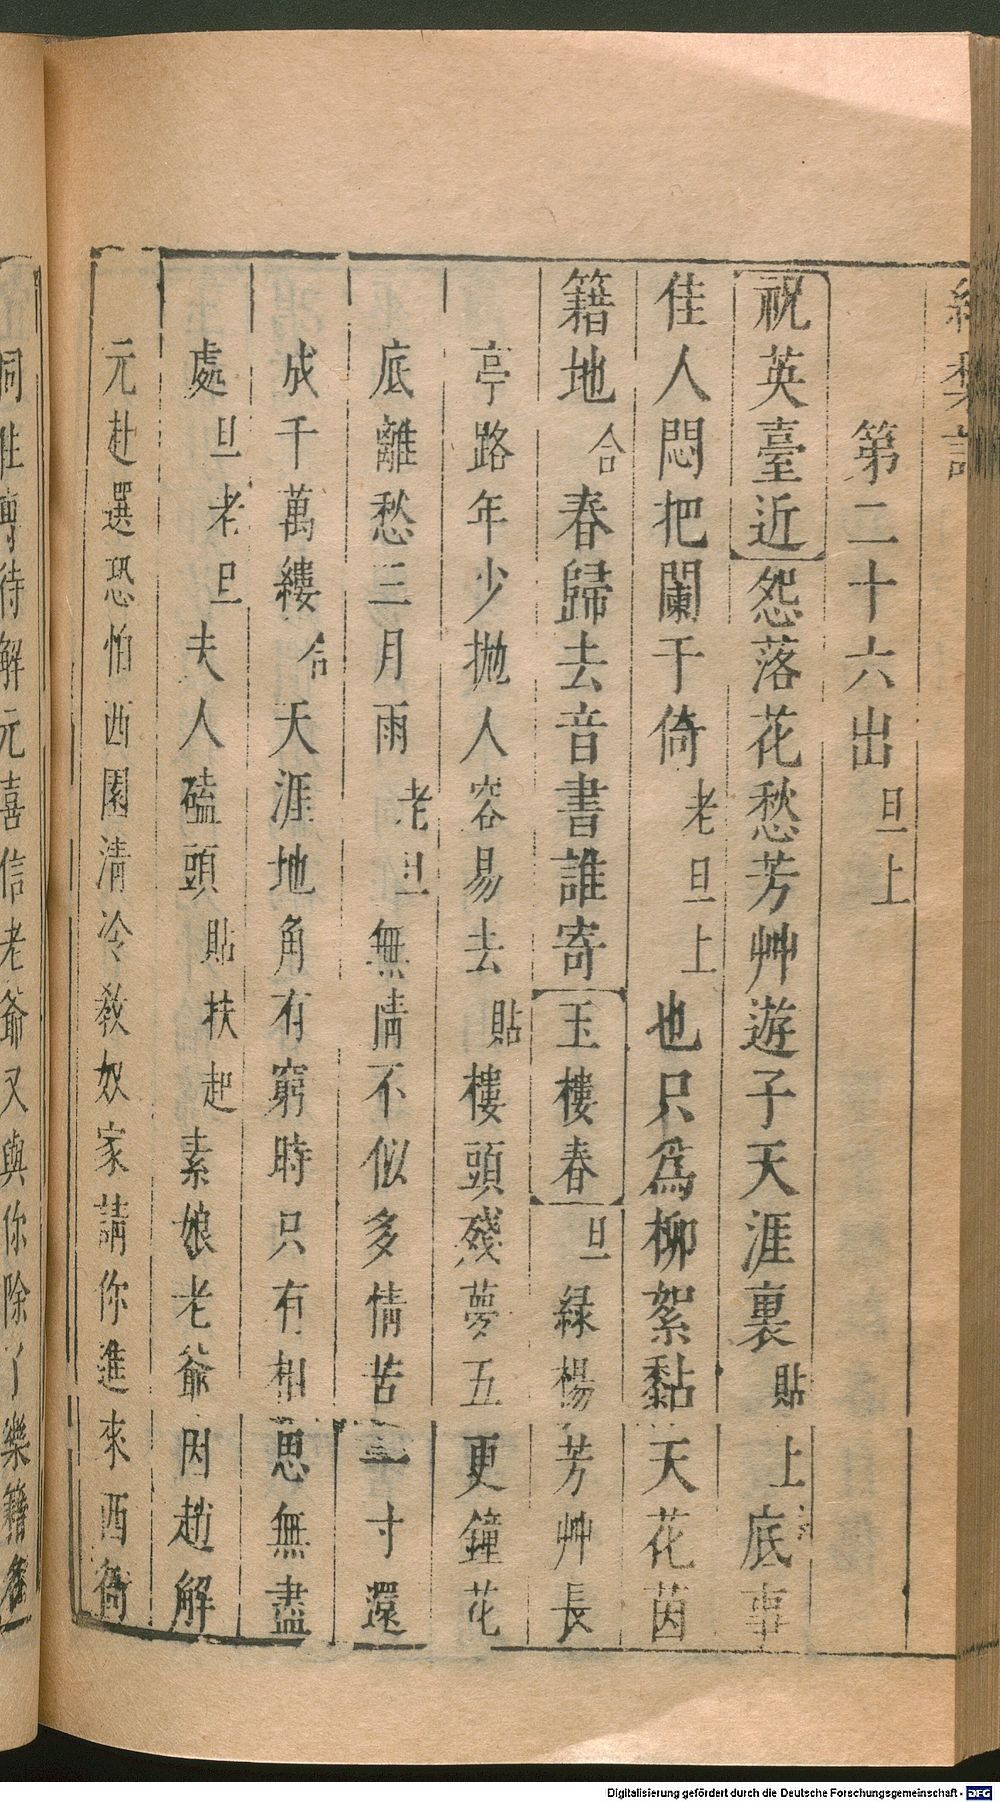 第二十六出 旦上
祝英臺近 怨落花愁芳艸遊子天涯裏 貼上 底事
佳人悶把闌干倚 老旦上 也只爲柳絮黏天花茵
籍地 合 春歸去音書誰寄 玉樓春 旦 緑楊芳艸長
亭路年少抛人容易去 貼 樓頭殘夢五更鐘花
底離愁三月雨 老旦 無情不似多情苦一寸還
成千萬縷 合 天涯地角有窮時只有相思無盡
處 旦 老旦 夫人磕頭 貼扶起 素娘老爺因趙解
元赴選恐怕西園清冷教奴家請你進來西衙
同住專待解元喜信老爺又與你除了樂籍名
Digitalisierung gefördert durch die Deutsche Forschungsgemeinschaft - DFG